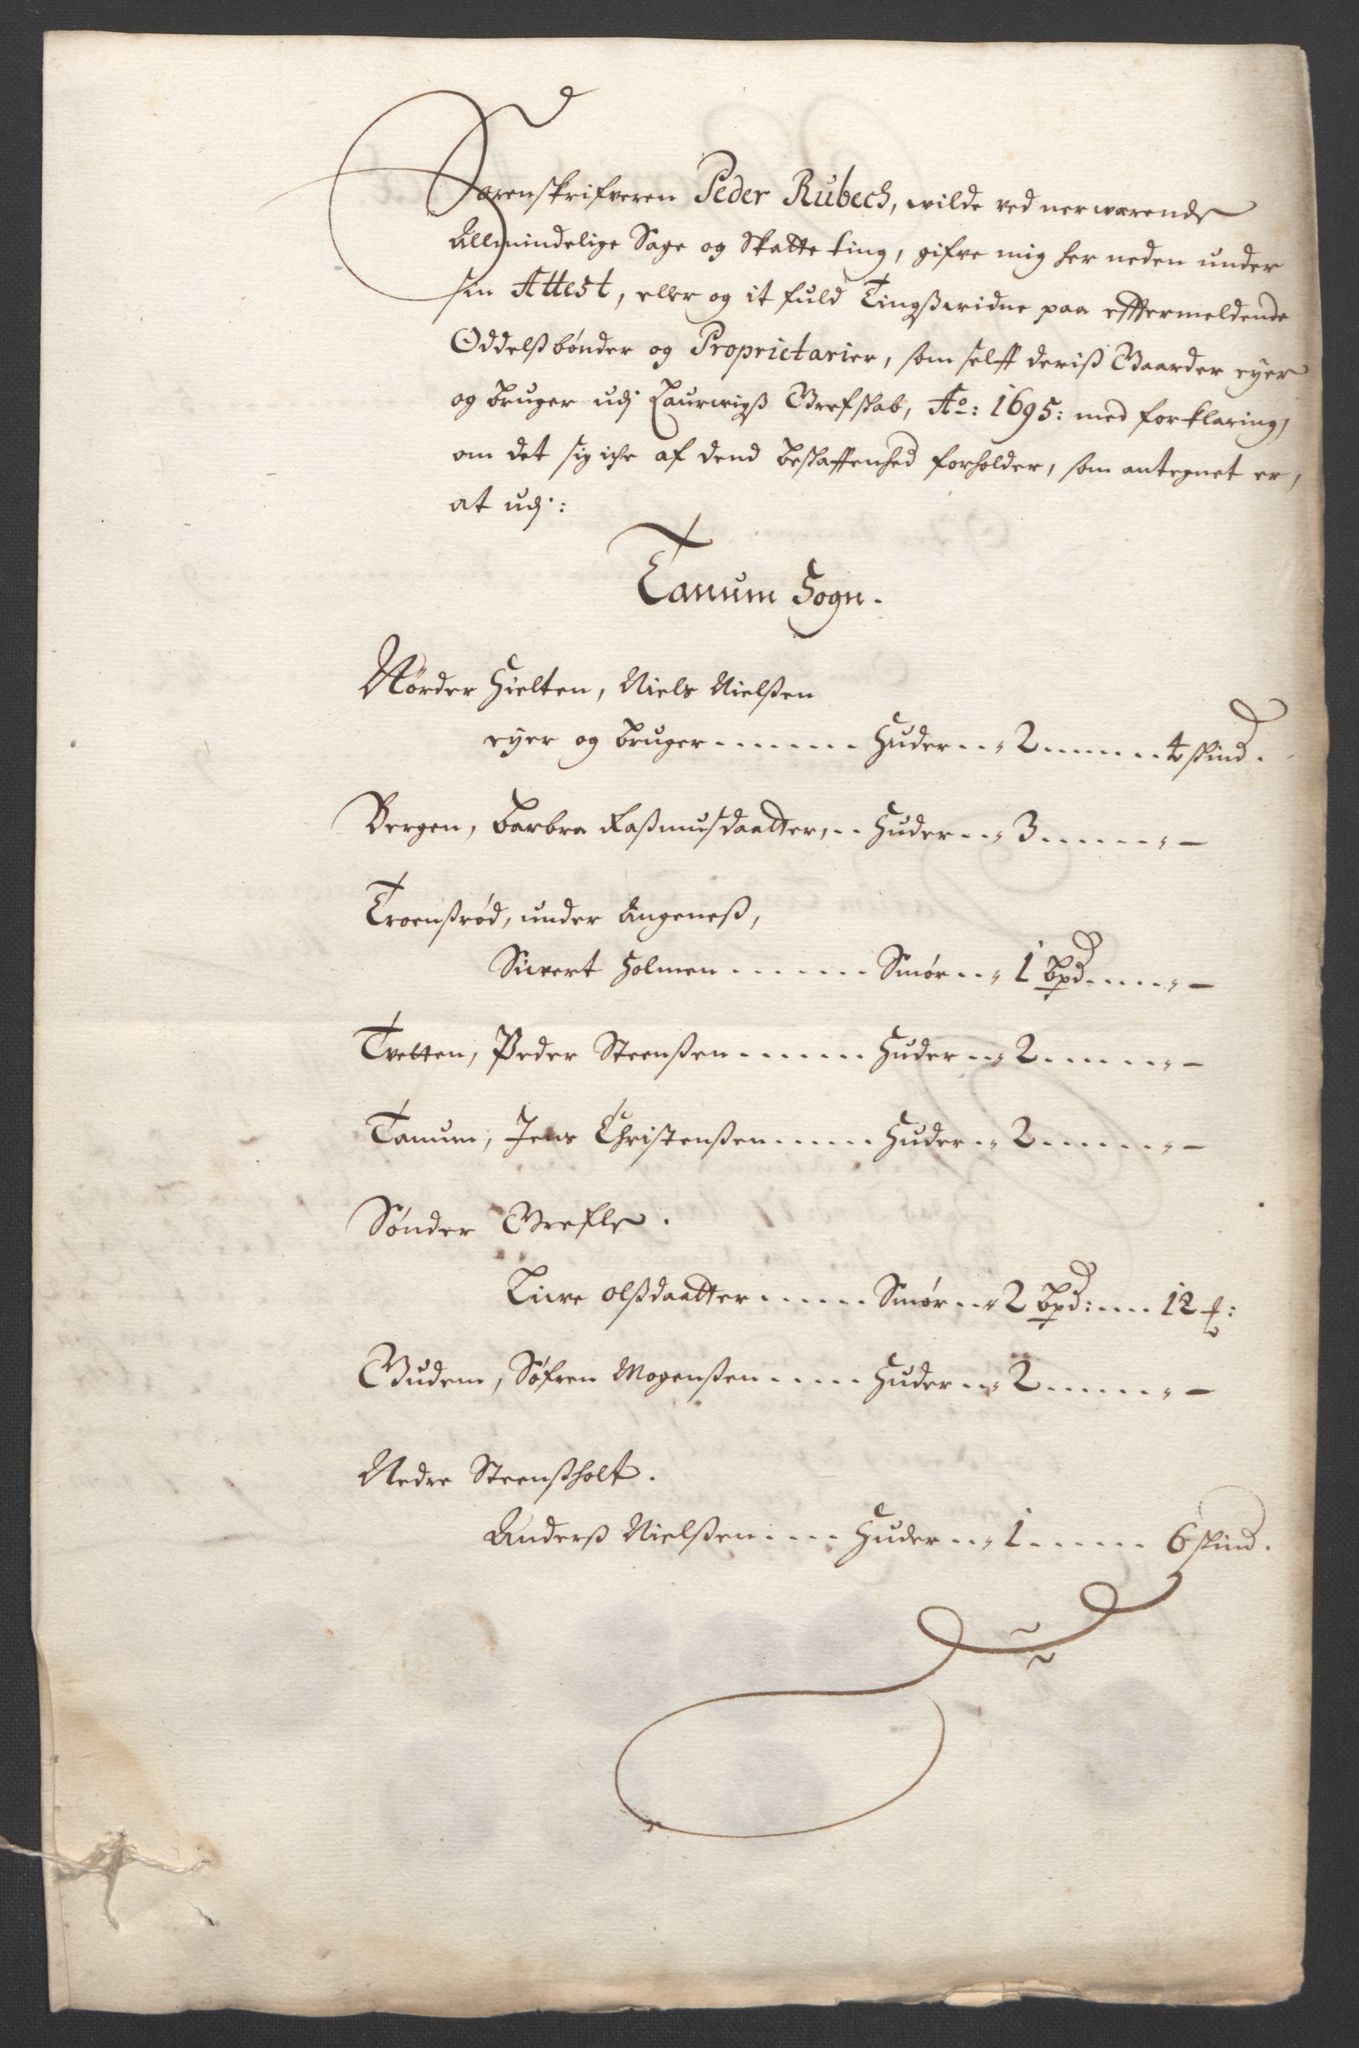 Sorenskrifveren Peder Rubech, wilde ved nerwærende
Allmindelige Sage og Skatte ting, gifve mig her neden under
sin Attest, eller og it fuld Tingßwidne paa effermeldende
Oddelßbønder og Proprietarier, som selff deriß Gaarder eyer
og bruger udj Laurwigß Grefskab, Ao: 1695: med forklaring,
om det sig iche af dend beskaffenhed forholder, som antegnet er,
at udj:
Tanum Sogn.
Nörder Hielten, Niels Nielßen
eyer og bruger ...... Huder .. 2 ..... 4 skind.
Bergen, Barbra Raßmusdaatter, .. Huder .. 3 ..... —
Troenßrød, under Angeneß,
Siwert Holmen ...... Smør .. 1 bpd ..... —
Tvetten, Peder Steenßen ...... Huder .. 2 ..... —
Tanum, Jens Christenßen ..... Huder .. 2 ..... —
Sønder Grefle.
Liwe olßdaatter ...... Smør .. 2 bpd: ... 12 ℔:
Gudem, Søfren Mogenßen ..... Huder .. 2 ..... —
Nedre Steenßholt.
Anderß Nielßen .... Huder .. 1 ..... 6 skind.